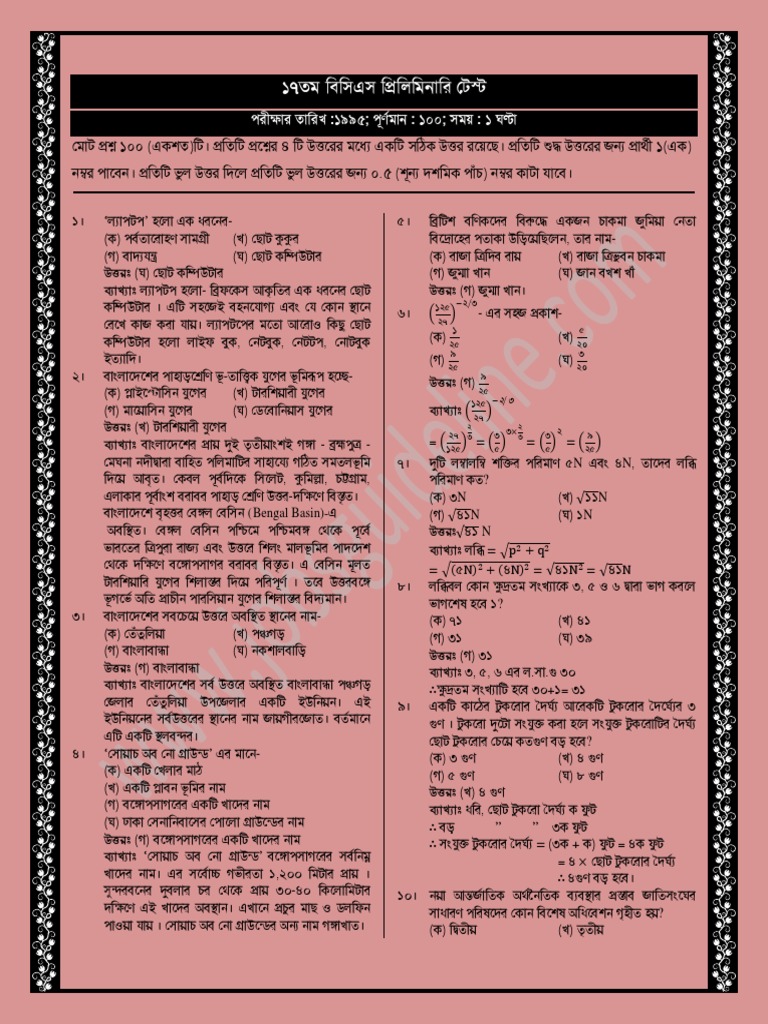 ১৭তম বিসিএস প্রিলিমিনারি টেস্ট
পরীক্ষার তারিখ :১৯৯৫; পূর্ণমান : ১০০; সময় : ১ ঘণ্টা
মোট প্রশ্ন ১০০ (একশত)টি। প্রতিটি প্রশ্নের ৪ টি উত্তরের মধ্যে একটি সঠিক উত্তর রয়েছে। প্রতিটি শুদ্ধ উত্তরের জন্য প্রার্থী ১(এক)
নম্বর পাবেন। প্রতিটি ভুল উত্তর দিলে প্রতিটি ভুল উত্তরের জন্য ০.৫ (শূন্য দশমিক পাঁচ) নম্বর কাটা যাবে।
১। 'ল্যাপটপ' হলো এক ধরনের-
(ক) পর্বতারোহণ সামগ্রী (খ) ছোট কুকুর
(গ) বাদ্যযন্ত্র (ঘ) ছোট কম্পিউটার
উত্তরঃ (ঘ) ছোট কম্পিউটার
ব্যাখ্যাঃ ল্যাপটপ হলো- ব্রিফকেস আকৃতির এক ধরনের ছোট
কম্পিউটার । এটি সহজেই বহনযোগ্য এবং যে কোন স্থানে
রেখে কাজ করা যায়। ল্যাপটপের মতো আরোও কিছু ছোট
কম্পিউটার হলো লাইফ বুক, নেটবুক, নেটটপ, নোটবুক
ইত্যাদি।
২। বাংলাদেশের পাহাড়শ্রেণি ভূ-তাত্ত্বিক যুগের ভূমিরূপ হচ্ছে-
(ক) প্লাইস্টোসিন যুগের (খ) টারশিয়ারী যুগের
(গ) মায়োসিন যুগের (ঘ) ডেবোনিয়াস যুগের
উত্তরঃ (খ) টারশিয়ারী যুগের
ব্যাখ্যাঃ বাংলাদেশের প্রায় দুই তৃতীয়াংশই গঙ্গা - ব্রহ্মপুত্র -
মেঘনা নদীদ্বারা বাহিত পলিমাটির সাহায্যে গঠিত সমতলভূমি
দিয়ে আবৃত। কেবল পূর্বদিকে সিলেট, কুমিল্লা, চট্টগ্রাম,
এলাকার পূর্বাংশ বরাবর পাহাড় শ্রেণি উত্তর-দক্ষিণে বিস্তৃত।
বাংলাদেশে বৃহত্তর বেঙ্গল বেসিন (Bengal Basin)-এ
অবস্থিত। বেঙ্গল বেসিন পশ্চিমে পশ্চিমবঙ্গ থেকে পূর্বে
ভারতের ত্রিপুরা রাজ্য এবং উত্তরে শিলং মালভূমির পাদদেশ
থেকে দক্ষিণে বঙ্গোপসাগর বরাবর বিস্তৃত। এ বেসিন মূলত
টারশিয়ারি যুগের শিলাস্তর দিয়ে পরিপূর্ণ । তবে উত্তরবঙ্গে
ভূগর্ভে অতি প্রাচীন পারসিয়ান যুগের শিলাস্তর বিদ্যমান।
৩। বাংলাদেশের সবচেয়ে উত্তরে অবস্থিত স্থানের নাম-
(ক) তেঁতুলিয়া (খ) পঞ্চগড়
(গ) বাংলাবান্ধা (ঘ) নকশালবাড়ি
উত্তরঃ (গ) বাংলাবান্ধা
ব্যাখ্যাঃ বাংলাদেশের সর্ব উত্তরে অবস্থিত বাংলাবান্ধা পঞ্চগড়
জেলার তেঁতুলিয়া উপজেলার একটি ইউনিয়ন। এই
ইউনিয়নের সর্বউত্তরের স্থানের নাম জায়গীরজোত। বর্তমানে
এটি একটি স্থলবন্দর।
৪। 'সোয়াচ অব নো গ্রাউন্ড' এর মানে-
(ক) একটি খেলার মাঠ
(খ) একটি প্লাবন ভূমির নাম
(গ) বঙ্গোপসাগরের একটি খাদের নাম
(ঘ) ঢাকা সেনানিবাসের পোলো গ্রাউন্ডের নাম
উত্তরঃ (গ) বঙ্গোপসাগরের একটি খাদের নাম
ব্যাখ্যাঃ 'সোয়াচ অব নো গ্রাউন্ড' বঙ্গোপসাগরের সর্বনিম্ন
খাদের নাম। এর সর্বোচ্চ গভীরতা ১,২০০ মিটার প্রায় ।
সুন্দরবনের দুবলার চর থেকে প্রায় ৩০-৪০ কিলোমিটার
দক্ষিণে এই খাদের অবস্থান। এখানে প্রচুর মাছ ও ডলফিন
পাওয়া যায় । সোয়াচ অব নো গ্রাউন্ডের অন্য নাম গঙ্গাখাত।
৫। ব্রিটিশ বণিকদের বিরুদ্ধে একজন চাকমা জুমিয়া নেতা
বিদ্রোহের পতাকা উড়িয়েছিলেন, তার নাম-
(ক) রাজা ত্রিদিব রায় (খ) রাজা ত্রিভুবন চাকমা
(গ) জুম্মা খান (ঘ) জান বখশ খাঁ
উত্তরঃ (গ) জুম্মা খান।
৬। (১২৫/২৭)^−২/৩ - এর সহজ প্রকাশ-
(ক) ১/২৫ (খ) ৫/২০
(গ) ৯/২৫ (ঘ) ৩/২০
উত্তরঃ (গ) ৯/২৫
ব্যাখ্যাঃ (১২৫/২৭)^−২/৩
= (২৭/১২৫)^২/৩ = (৩/৫)^৩×২/৩ = (৩/৫)^২ = (৯/২৫)
৭। দুটি লম্বালম্বি শক্তির পরিমাণ ৫N এবং ৪N, তাদের লব্ধি
পরিমাণ কত?
(ক) ৩N (খ) √১১N
(গ) √৪১N (ঘ) ১N
উত্তরঃ√৪১ N
ব্যাখ্যাঃ লব্ধি = √p² + q²
= √(৫N)² + (৪N)² = √৪১N² = √৪১N
৮। লব্ধিবল কোন ক্ষুদ্রতম সংখ্যাকে ৩, ৫ ও ৬ দ্বারা ভাগ করলে
ভাগশেষ হবে ১?
(ক) ৭১ (খ) ৪১
(গ) ৩১ (ঘ) ৩৯
উত্তরঃ (গ) ৩১
ব্যাখ্যাঃ ৩, ৫, ৬ এর ল.সা.গু ৩০
∴ক্ষুদ্রতম সংখ্যাটি হবে ৩০+১= ৩১
৯। একটি কাঠের টুকরোর দৈর্ঘ্য আরেকটি টুকরোর দৈর্ঘ্যের ৩
গুণ । টুকরো দুটো সংযুক্ত করা হলে সংযুক্ত টুকরোটির দৈর্ঘ্য
ছোট টুকরোর চেয়ে কতগুণ বড় হবে?
(ক) ৩ গুণ (খ) ৪ গুণ
(গ) ৫ গুণ (ঘ) ৮ গুণ
উত্তরঃ (খ) ৪ গুণ
ব্যাখ্যাঃ ধরি, ছোট টুকরো দৈর্ঘ্য ক ফুট
∴ বড় ” ” ৩ক ফুট
∴ সংযুক্ত টুকরোর দৈর্ঘ্য = (৩ক + ক) ফুট = ৪ক ফুট
= ৪ × ছোট টুকরোর দৈর্ঘ্য
∴ ৪গুণ বড় হবে।
১০। নয়া আন্তর্জাতিক অর্থনৈতিক ব্যবস্থার প্রস্তাব জাতিসংঘের
সাধারণ পরিষদের কোন বিশেষ অধিবেশন গৃহীত হয়?
(ক) দ্বিতীয় (খ) তৃতীয়